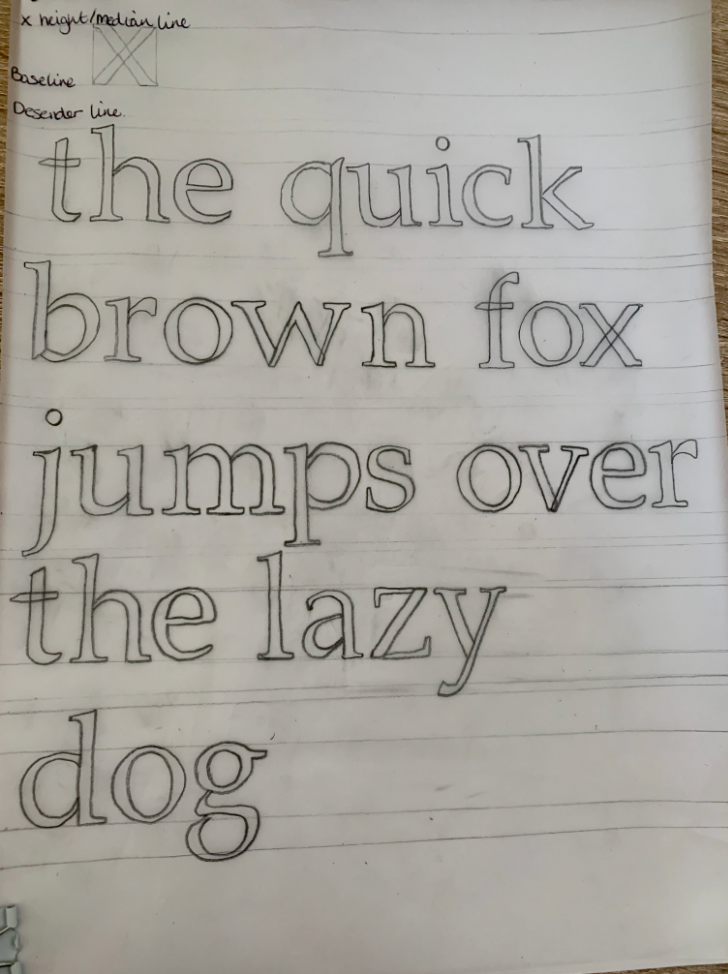 x height/median line
Baseline
Desender line.
the quick
brown fox
jumps over
the lazy
dog